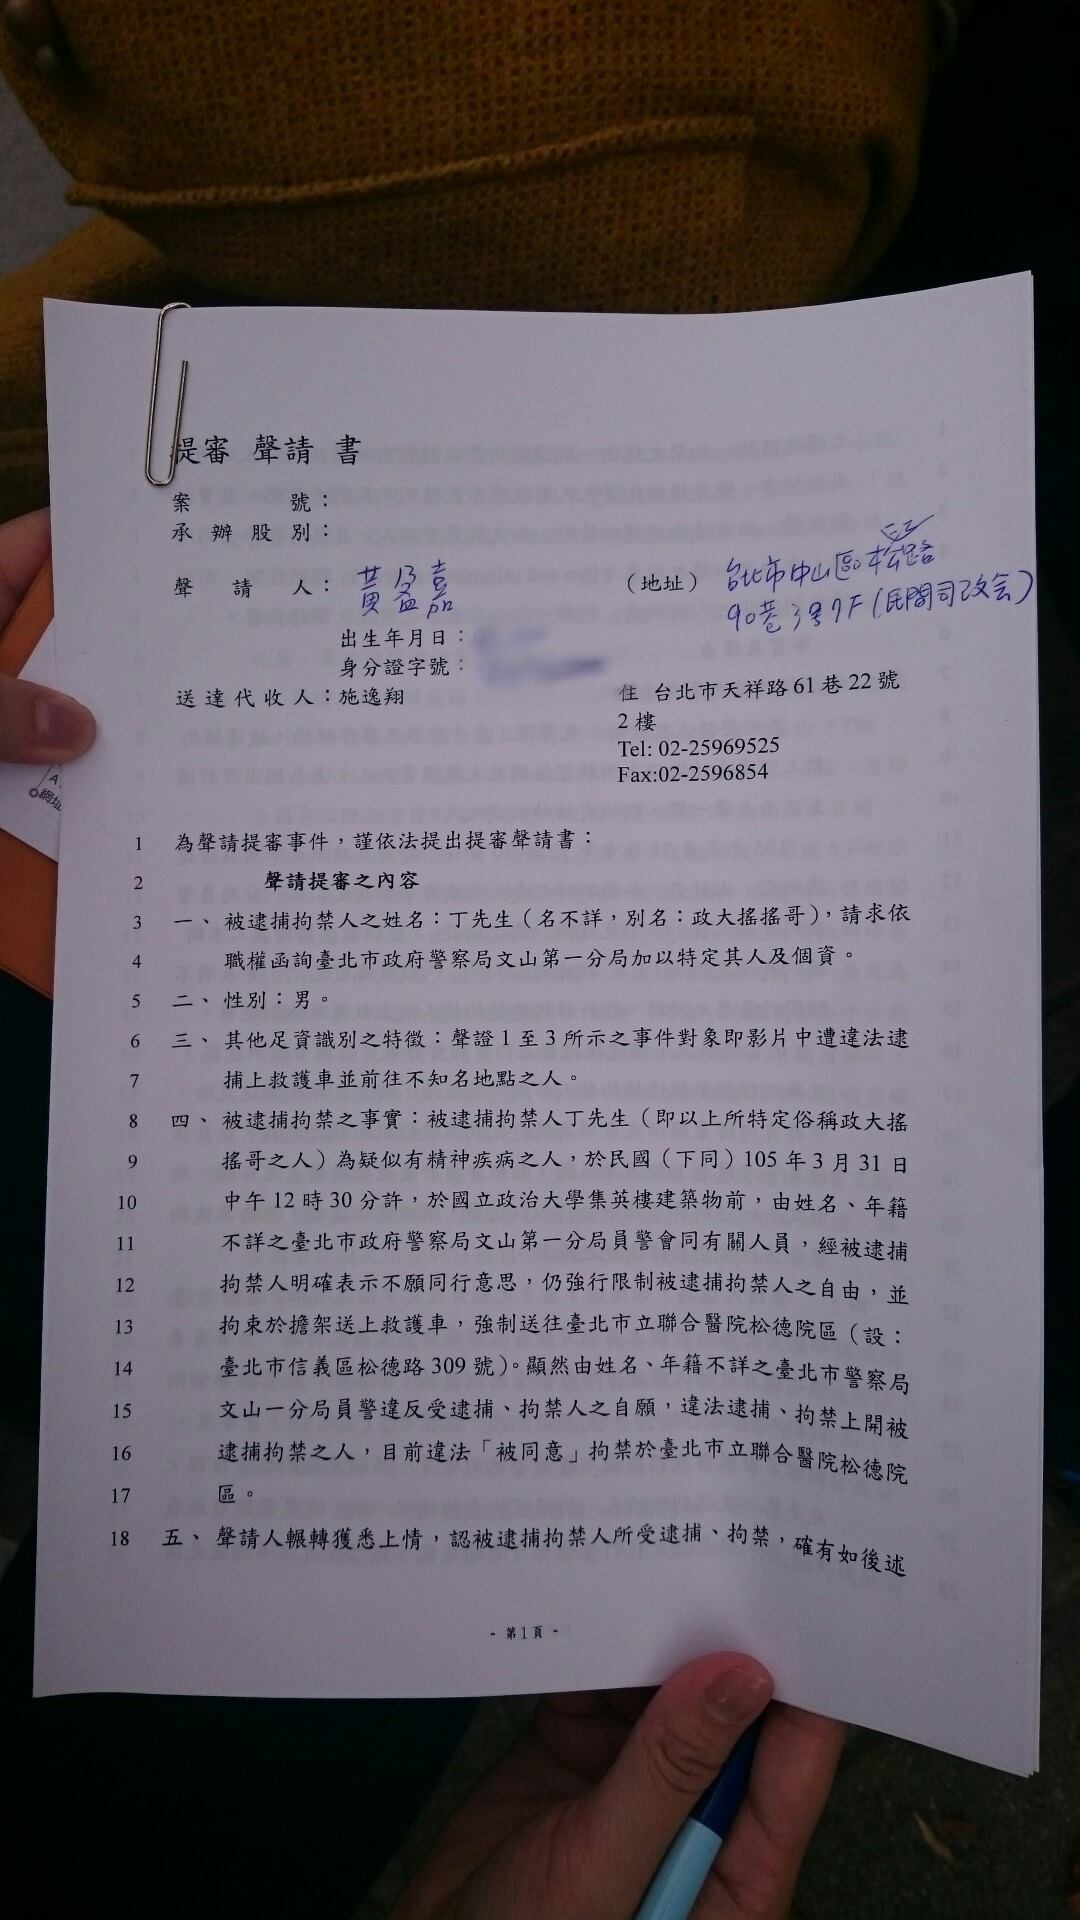 提審 聲請 書
案 號：
承 辦 股 別：
聲 請 人： 黃盈嘉 （地址） 台北市中山區松江路
90巷3號7F(民間司改会)
出生年月日：
身分證字號：
送達代收人：施逸翔 住 台北市天祥路61巷22號
2樓
Tel: 02-25969525
Fax:02-2596854
1 為聲請提審事件，謹依法提出提審聲請書：
2 聲請提審之內容
3 一、 被逮捕拘禁人之姓名：丁先生（名不詳，別名：政大搖搖哥），請求依
4 職權函詢臺北市政府警察局文山第一分局加以特定其人及個資。
5 二、 性別：男。
6 三、 其他足資識別之特徵：聲證1至3所示之事件對象即影片中遭違法逮
7 捕上救護車並前往不知名地點之人。
8 四、 被逮捕拘禁之事實：被逮捕拘禁人丁先生（即以上所特定俗稱政大搖
9 搖哥之人）為疑似有精神疾病之人，於民國（下同）105年3月31日
10 中午12時30分許，於國立政治大學集英樓建築物前，由姓名、年籍
11 不詳之臺北市政府警察局文山第一分局員警會同有關人員，經被逮捕
12 拘禁人明確表示不願同行意思，仍強行限制被逮捕拘禁人之自由，並
13 拘束於擔架送上救護車，強制送往臺北市立聯合醫院松德院區（設：
14 臺北市信義區松德路309號）。顯然由姓名、年籍不詳之臺北市警察局
15 文山一分局員警違反受逮捕、拘禁人之自願，違法逮捕、拘禁上開被
16 逮捕拘禁之人，目前違法「被同意」拘禁於臺北市立聯合醫院松德院
17 區。
18 五、 聲請人輾轉獲悉上情，認被逮捕拘禁人所受逮捕、拘禁，確有如後述
- 第1頁 -
網址